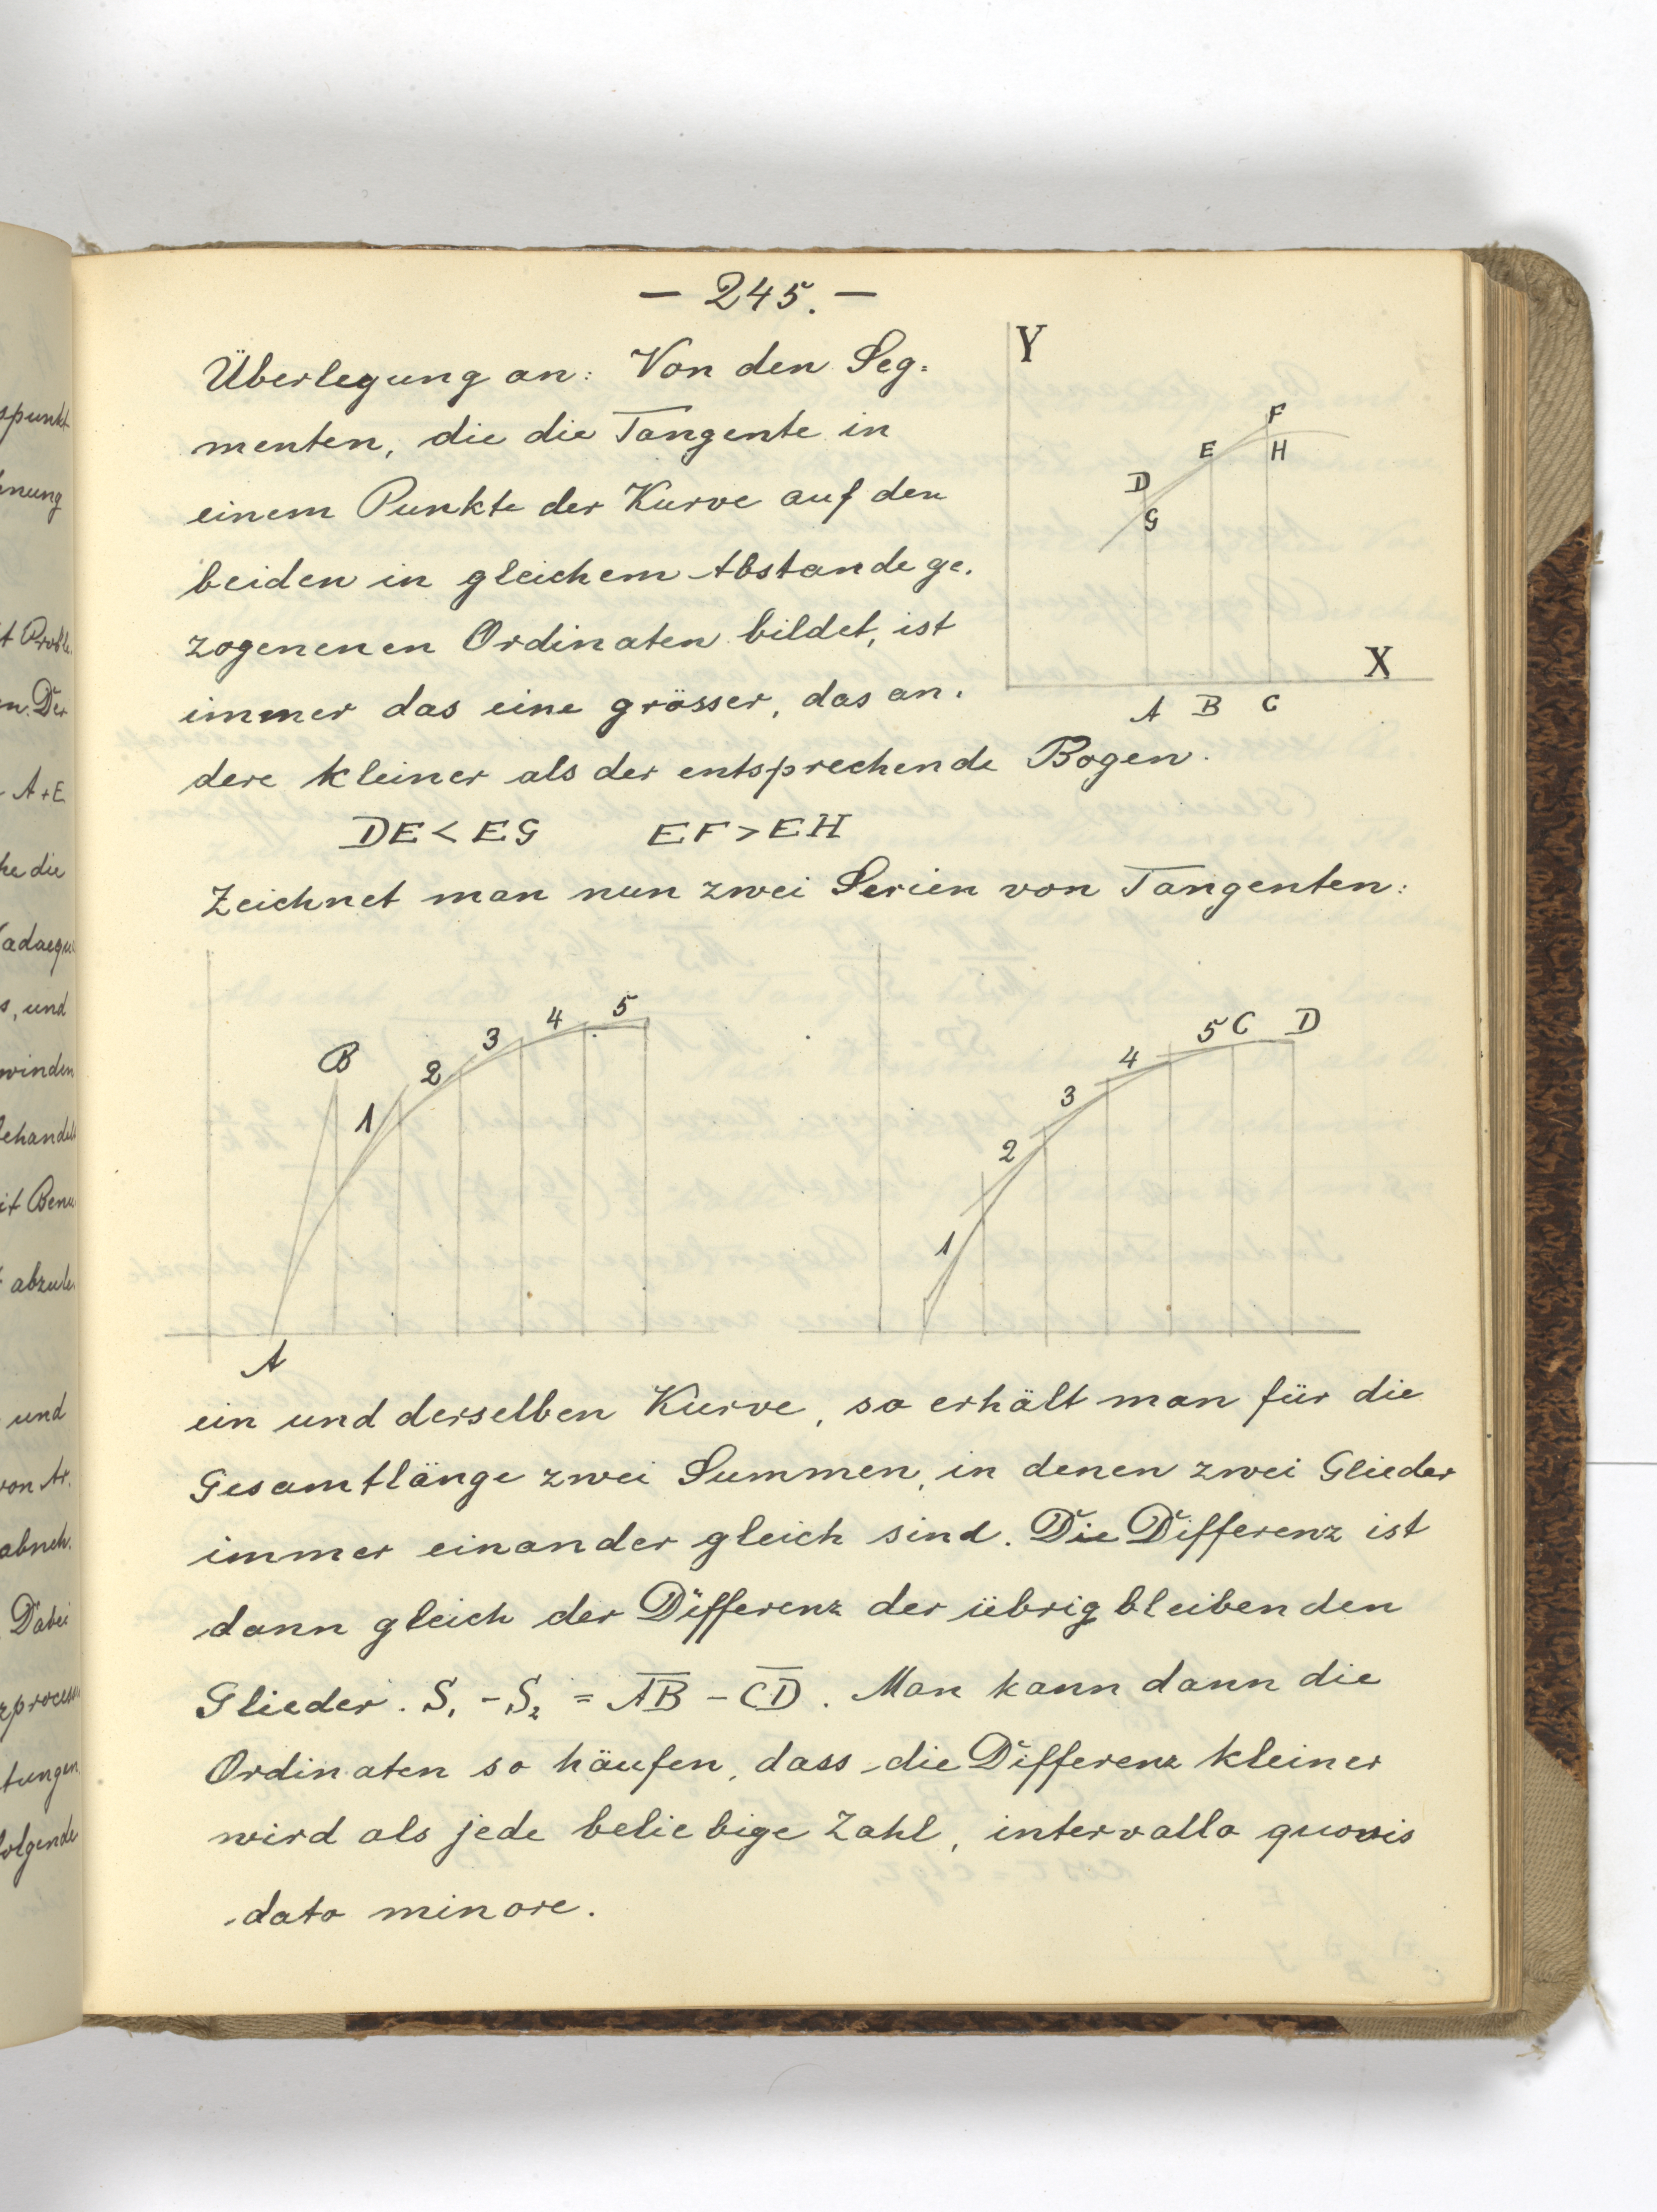 — 245. —
Überlegung an: Von den Seg-
menten, die die Tangente in
einem Punkte der Kurve auf den
beiden in gleichem Abstande ge-
zogenenen Ordinaten bildet, ist
immer das eine grösser, das an-
dere kleiner als der entsprechende Bogen.
Y
F
E H
D
G
X
A B C
DE < EG EF > EH
Zeichnet man nun zwei Serien von Tangenten:
B 1 2 3 4 5
A
1 2 3 4 5 C D
ein und derselben Kurve, so erhält man für die
Gesamtlänge zwei Summen, in denen zwei Glieder
immer einander gleich sind. Die Differenz ist
dann gleich der Differenz der übrigbleibenden
Glieder. S₁ - S₂ = A̅B̅ - C̅D̅. Man kann dann die
Ordinaten so häufen, dass die Differenz kleiner
wird als jede beliebige Zahl, intervallo quovis
dato minore.
spunkt
t Proble-
n. Der
A+E
he die
(adaequ
s, und
winden
behandel
it Benu
abzule
und
von Ar.
abneh-
Dabei
zprocess
tungen
folgende